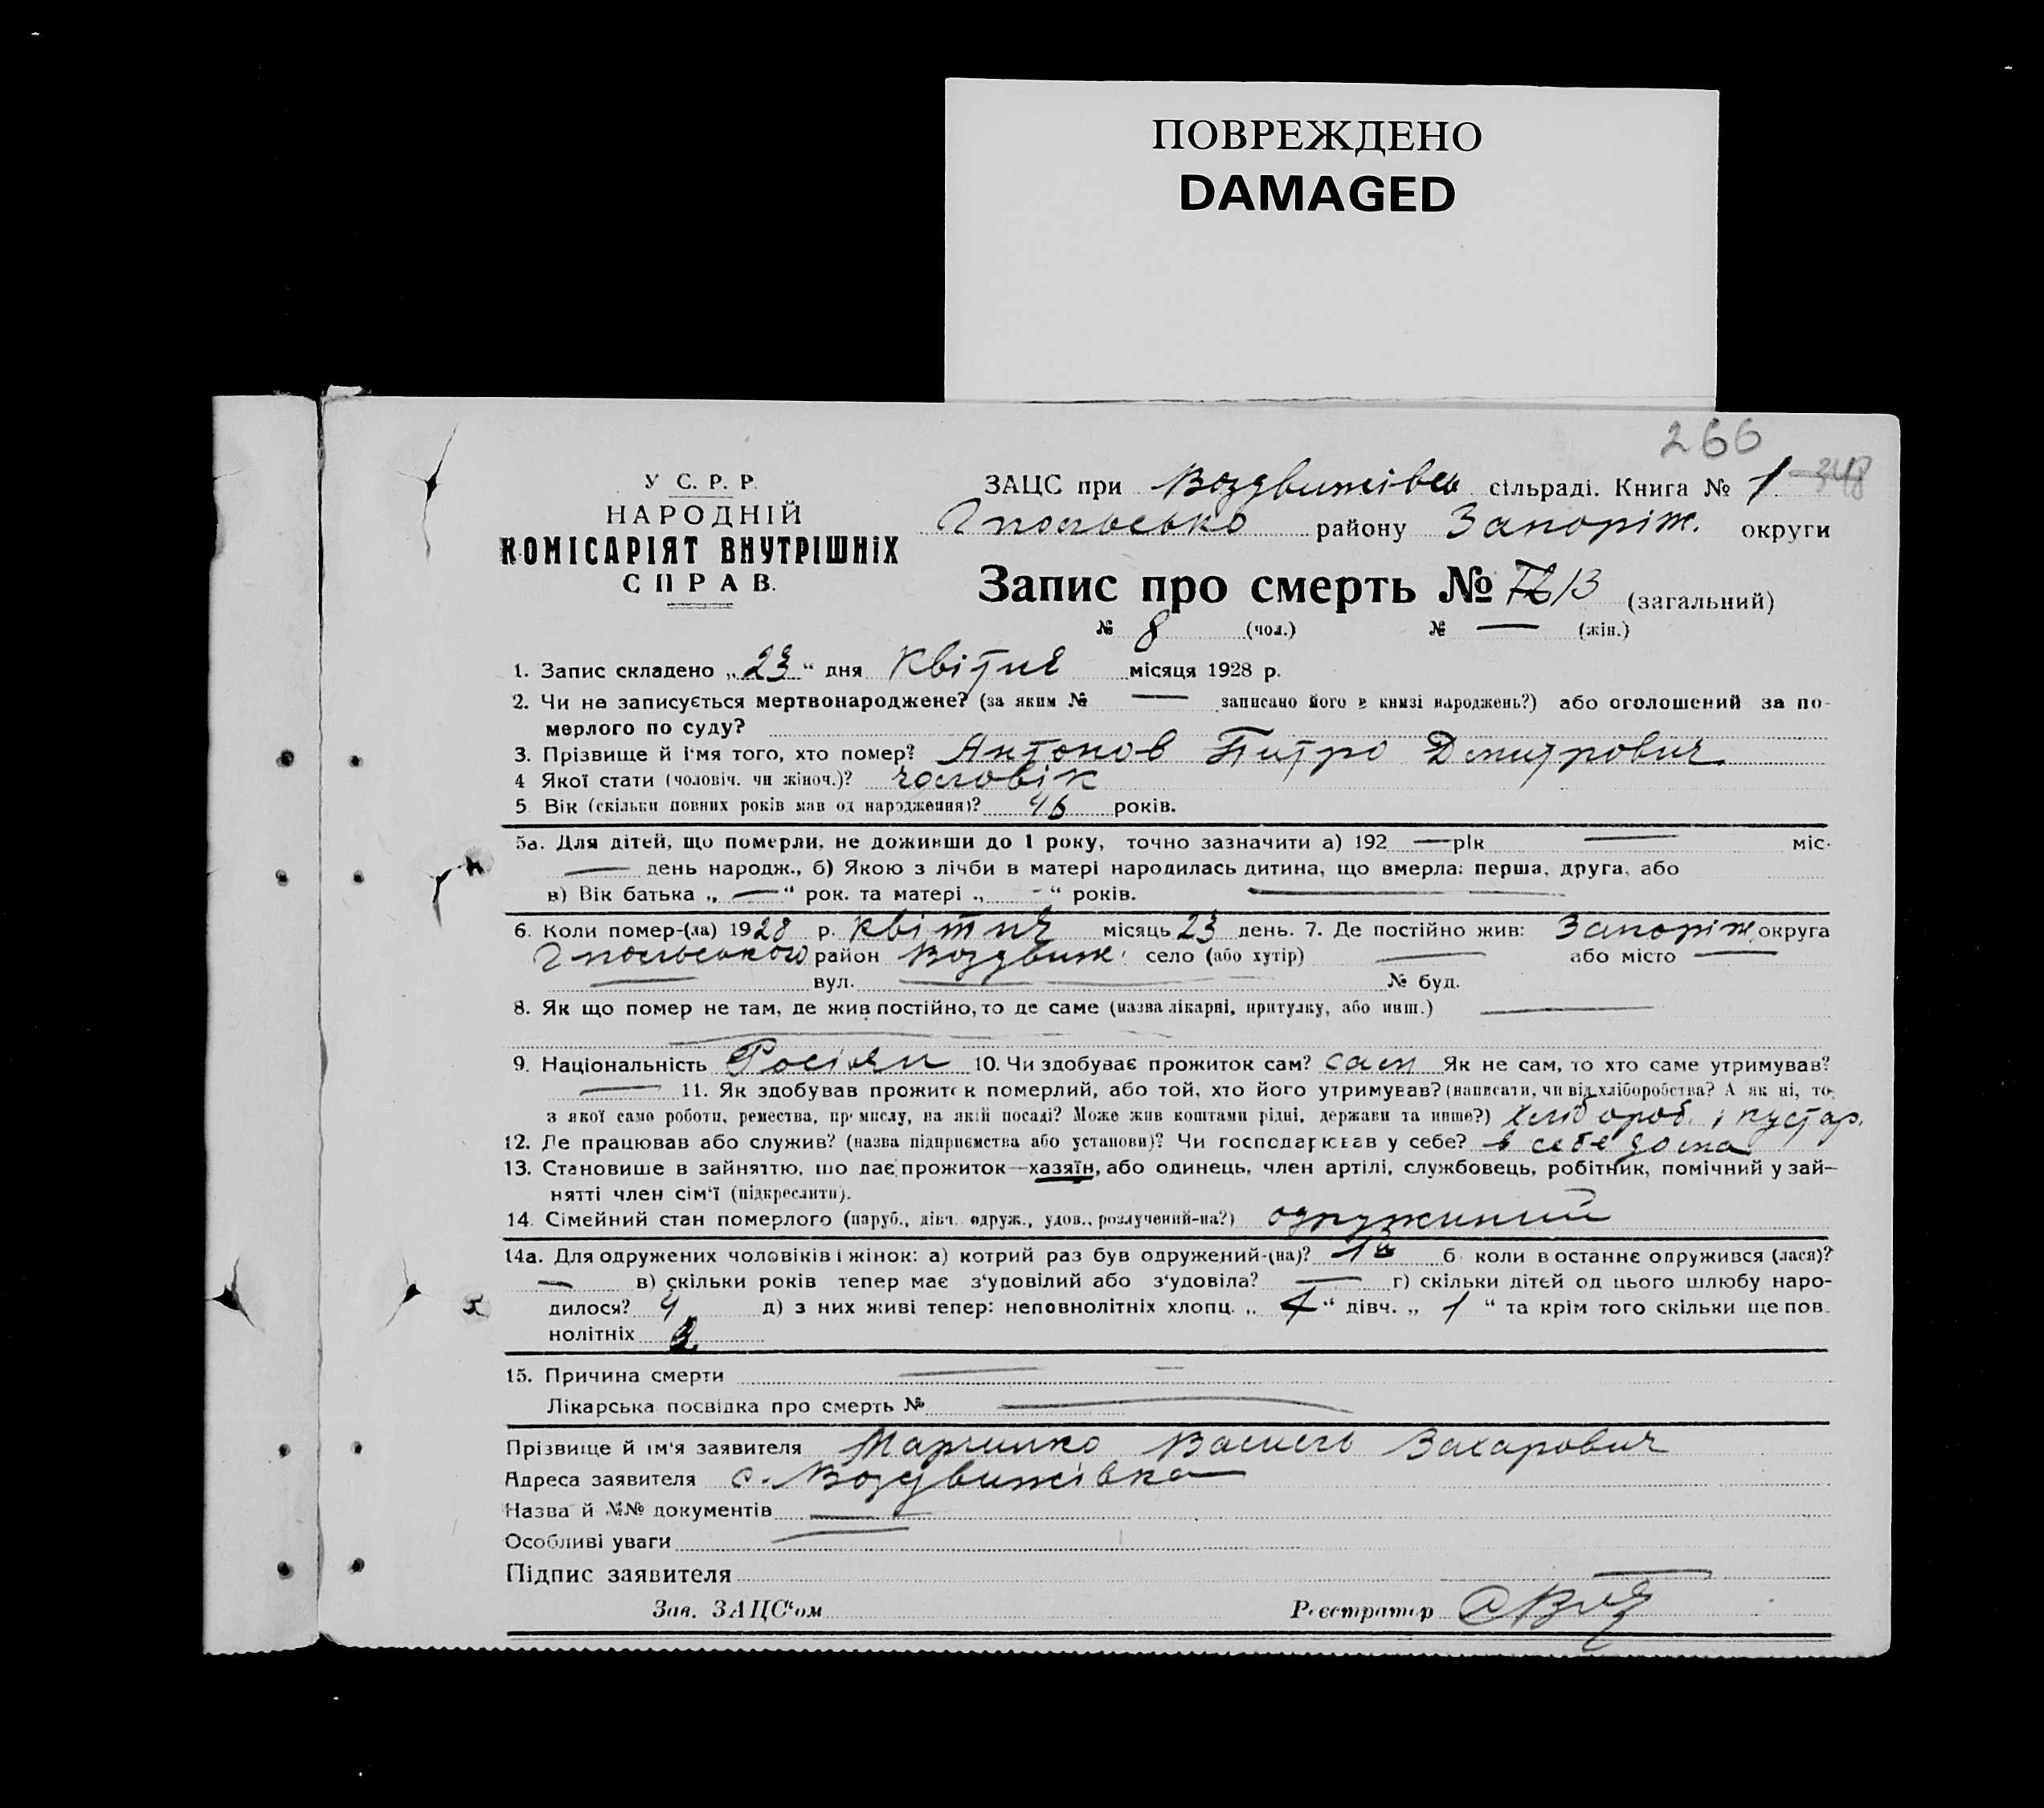 ПОВРЕЖДЕНО
DAMAGED
266
У С. Р. Р.
НАРОДНІЙ
КОМІСАРІЯТ ВНУТРІШНІХ
СПРАВ.
ЗАЦС при Воздвижівск сільраді. Книга № 1 348
району Запоріж. округи
Запис про смерть № 13 (загальний)
№ 8 (чол.) № — (жін.)
1. Запис складено „23“ дня Квітня місяця 1928 р.
2. Чи не записується мертвонароджене? (за яким № — записано його в книзі народжень?) або оголошений за по-
мерлого по суду?
3. Прізвище й ім'я того, хто помер? Антонов Питро Дмитрович
4 Якої стати (чоловіч. чи жіноч.)? чоловік
5 Вік (скільки повних років мав од народження)? 46 років.
5а. Для дітей, що померли, не доживши до 1 року, точно зазначити а) 192 — рік — міс.
— день народж., б) Якою з лічби в матері народилась дитина, що вмерла: перша, друга, або
в) Вік батька „ — “ рок. та матері „ - “ років. —
6. Коли помер-(ла) 1928 р. квітня місяць 23 день. 7. Де постійно жив: Запоріж округа
район Воздвиж. село (або хутір) — або місто —
— вул. — № буд.
8. Як що помер не там, де жив постійно, то де саме (назва лікарні, притулку, або инш.) —
9. Національність Росіян 10. Чи здобуває прожиток сам? сам Як не сам, то хто саме утримував?
— 11. Як здобував прожиток померлий, або той, хто його утримував? (написати, чи від хліборобства? А як ні, то
з якої само роботи, ремества, промислу, на якій посаді? Може жив коштами рідні, держави та инше?) хлібороб. і кустар.
12. Де працював або служив? (назва підприємства або установи)? Чи господарював у себе? в себе дома
13. Становище в зайняттю, що дає прожиток—хазяїн, або одинець, член артілі, службовець, робітник, помічний у зай-
нятті член сім'ї (підкреслити).
14. Сімейний стан померлого (паруб., дівч. одруж., удов., розлучений-на?) одружиний
14а. Для одружених чоловіків і жінок: а) котрий раз був одружений-(на)? 1й б. коли востаннє одружився (лася)?
— в) скільки років тепер має з'удовілий або з'удовіла? — г) скільки літей од цього шлюбу наро-
дилося? 4 д) з них живі тепер: неповнолітніх хлопц. „ “ дівч. „ 1 “ та крім того скільки ще пов.
нолітніх 2
15. Причина смерти —
Лікарська посвідка про смерть № —
Прізвище й ім'я заявителя Марченко Василь Захарович
Адреса заявителя с. Воздвижівка
Назва й №№ документів —
Особливі уваги —
Підпис заявителя —
Зав. ЗАЦС'ом Реєстратор